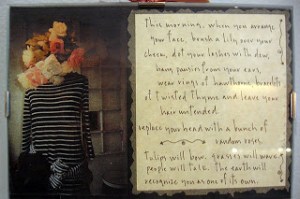 This morning, when you arrange
your face, brush a lily over your
cheeks, dot your lashes with dew,
hang pansies from your ears,
wear rings of hawthorne, bracelets
of twisted Thyme and leave your
hair untended.
replace your head with a bunch of
random roses.
Tulips will bow, grasses will wave,
people will talk. The earth will
recognize you as one of its own.